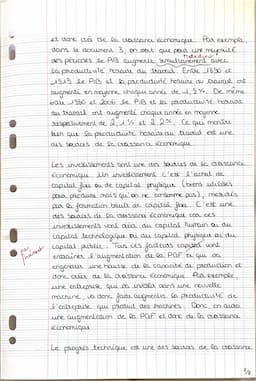 et donc crée de la croissance économique. Par exemple,
dans le document 3, on voit que pour une majorité
des périodes le PIB augmente simultanément avec
la productivité horaire du travail. Entre 1890 et
1913 le PIB et la productivité horaire du travail ont
augmenté en moyenne chaque année de 1,9%. De même
entre 1990 et 2006 le PIB et la productivité horaire
du travail ont augmenté chaque année en moyenne
respectivement de 2,1% et 2,2%. Ce qui montre
bien que la productivité horaire du travail est une
des sources de la croissance économique.
Les investissements sont une des sources de la croissance
économique. Un investissement c'est l'achat de
capital fixe ou de capital physique (biens utilisés
pour produire mais qu'on ne consomme pas), mesurés
par la formation brute de capital fixe. C'est une
des sources de la croissance économique car ces
investissements vont créer du capital humain ou du
capital technologique ou du capital physique ou du
capital public. Tous ces facteurs capital vont
entraîner l'augmentation de la PGF ce qui va
engendrer une hausse de la capacité de production et
donc créer de la croissance économique. Par exemple,
une entreprise qui va investir dans une nouvelle
machine, va donc faire augmenter la productivité de
l'entreprise qui produit des machines. Donc, on aura
une augmentation de la PGF et donc de la croissance
économique.
Le progrès technique est une des sources de la croissance